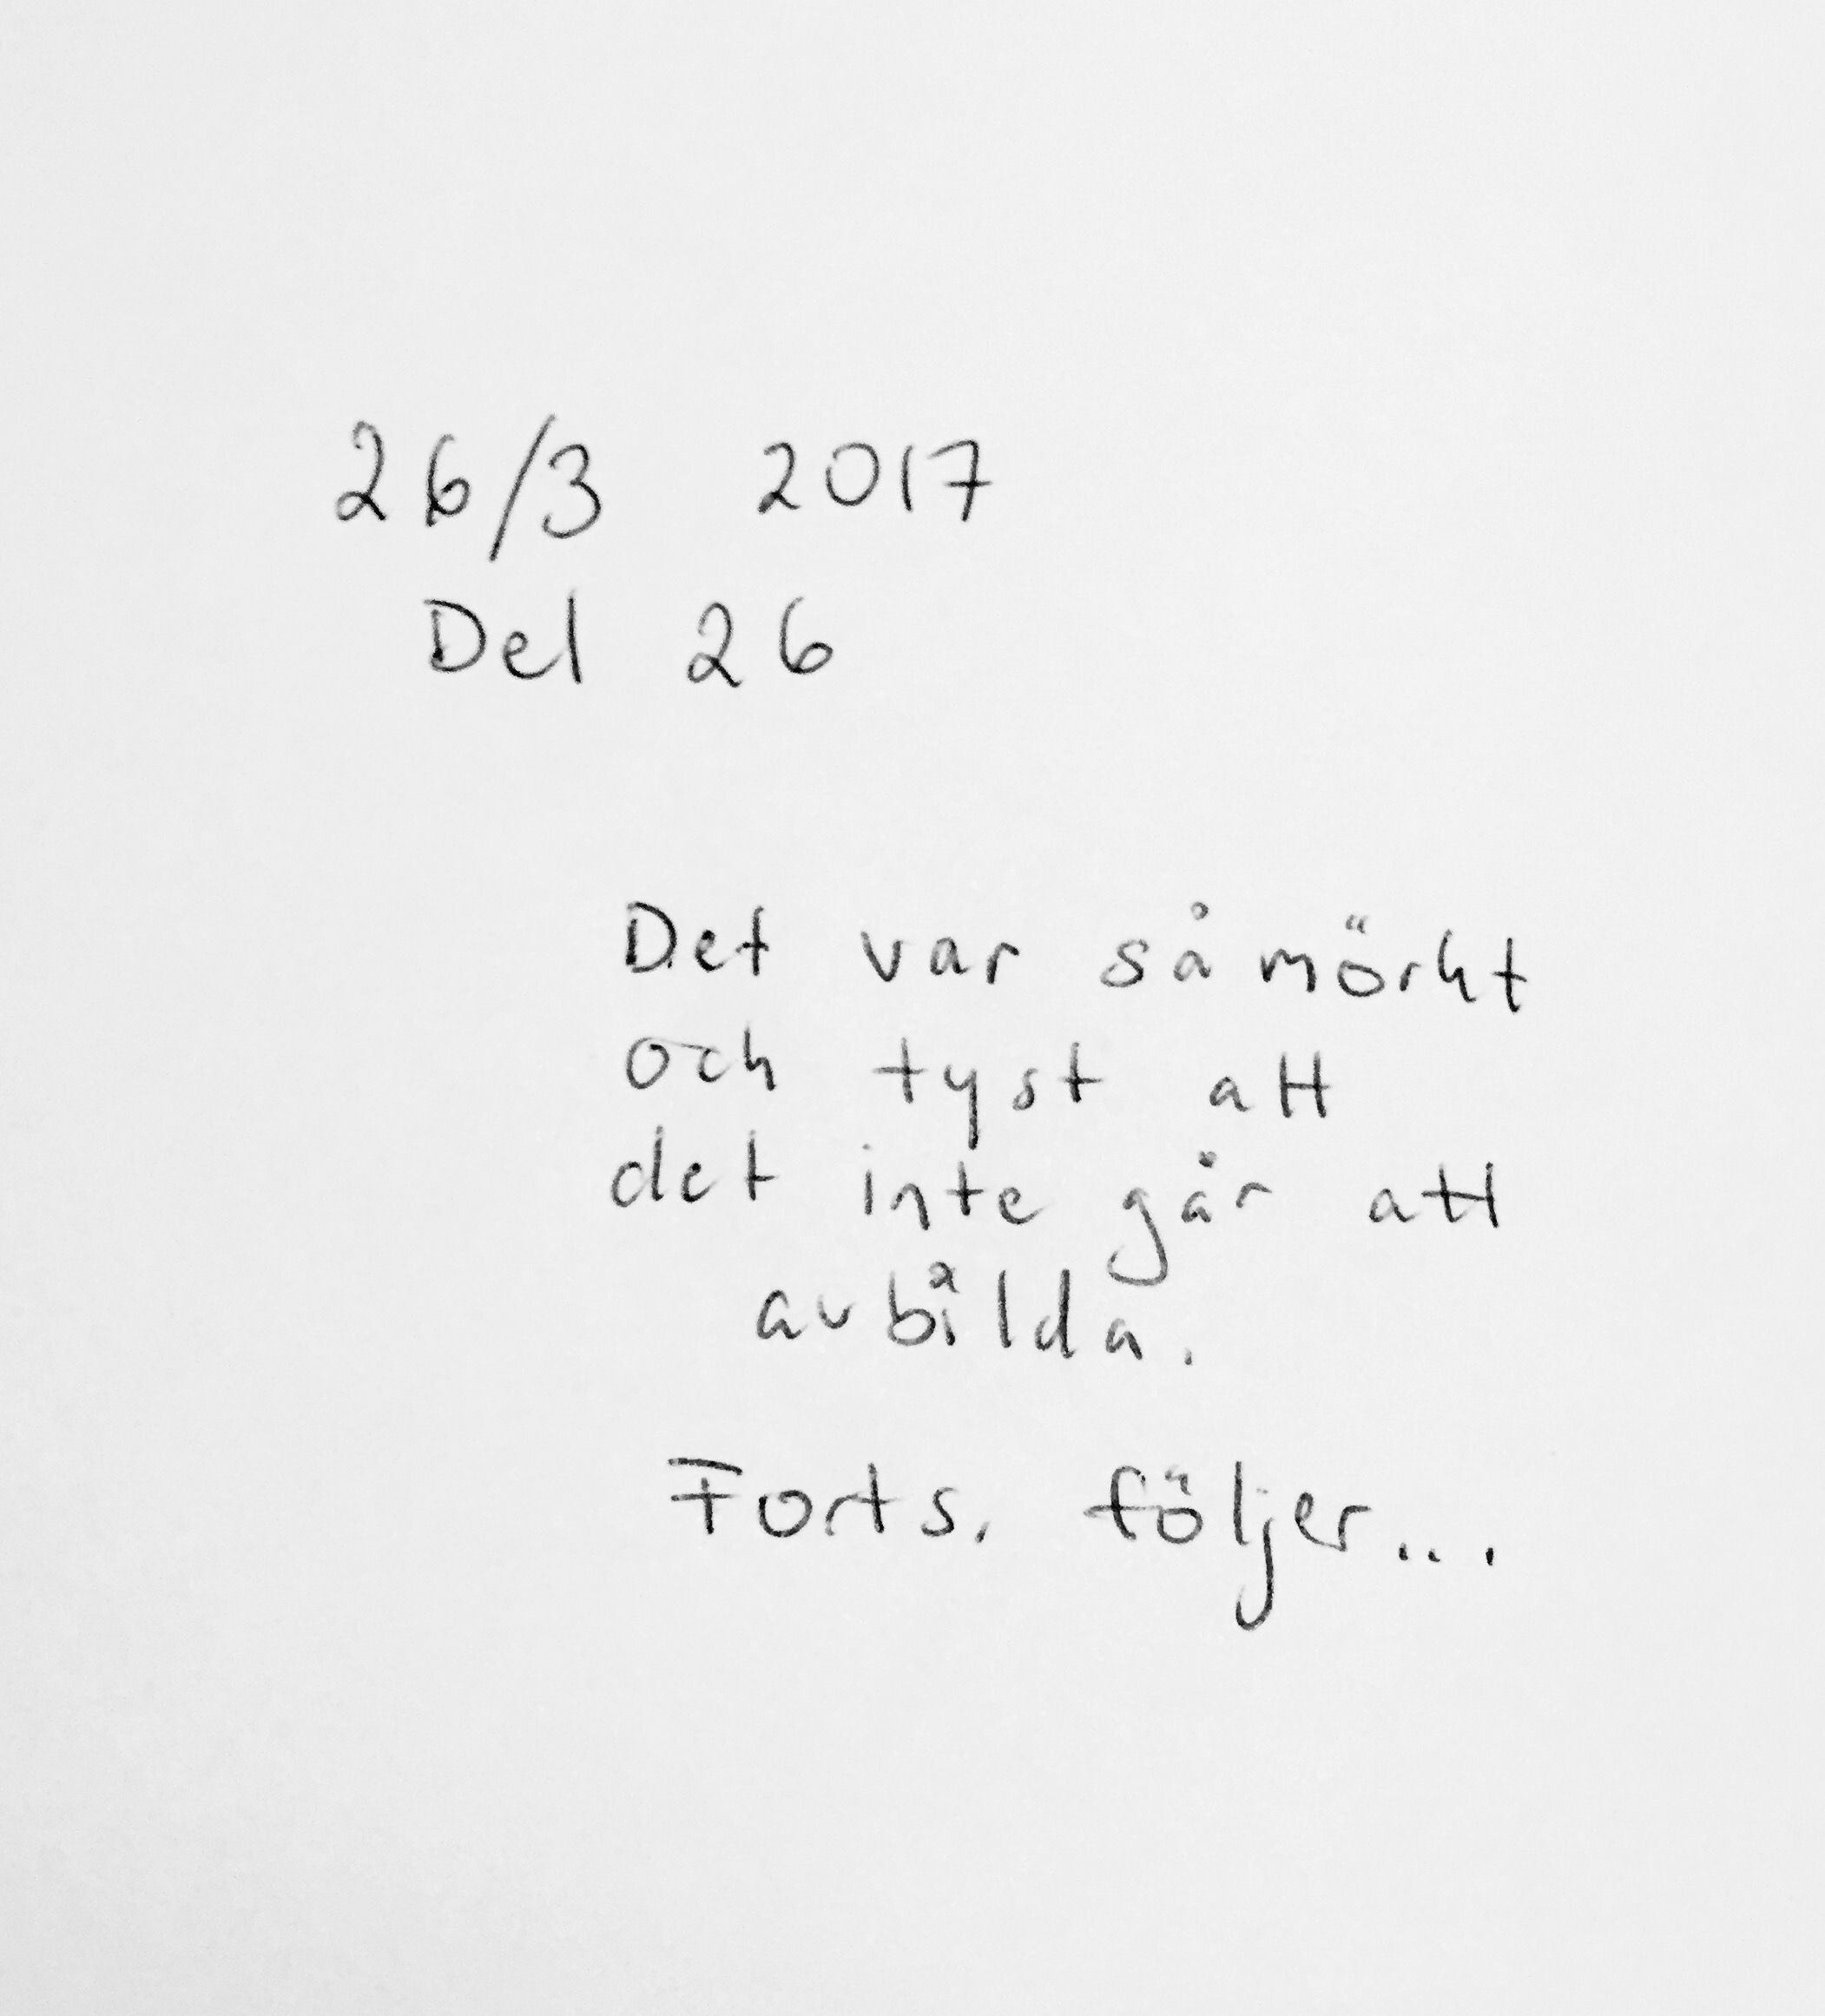 26/3 2017
Del 26
Det var så mörkt
och tyst att
det inte går att
avbilda.
Forts. följer...